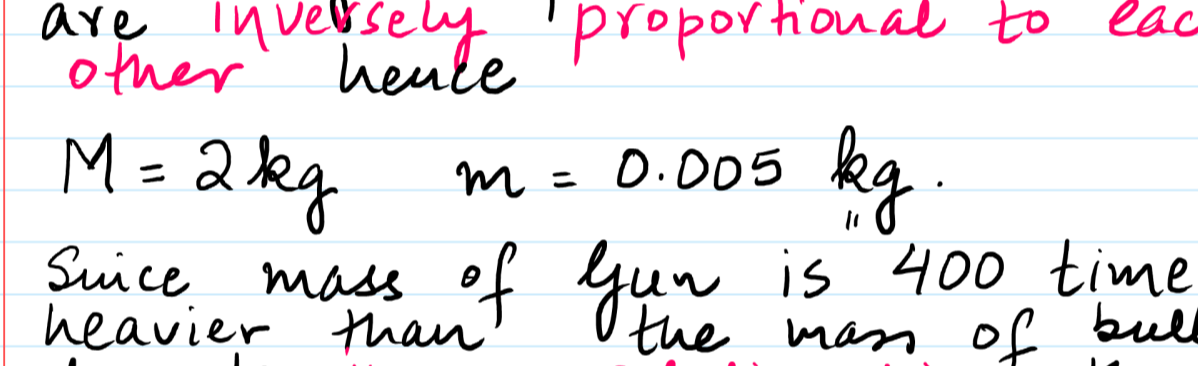 are inversely proportional to eac
other hence
M = 2 kg m = 0.005 kg.
Suice mass of Gun is 400 time
heavier than the mass of bull